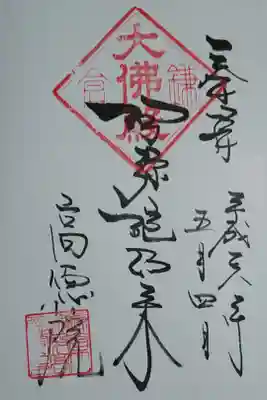 奉拝
平成二八年
五月四日
大佛殿
阿弥陀如来
高徳院